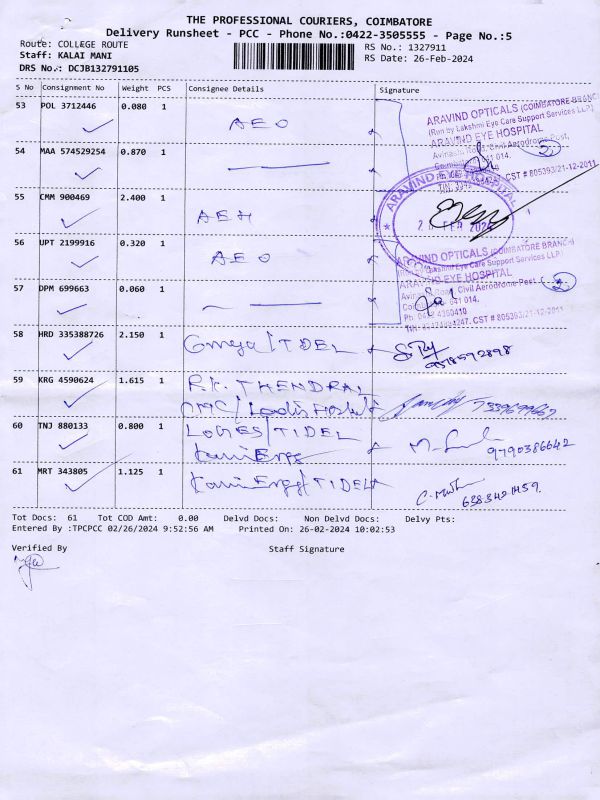 THE PROFESSIONAL COURIERS, COIMBATORE
Delivery Runsheet - PCC - Phone No.:0422-3505555 - Page No.:5
Route: COLLEGE ROUTE
Staff: KALAI MANI
DRS No.: DCJB132791105
RS No.: 1327911
RS Date: 26-Feb-2024
S No Consignment No Weight PCS Consignee Details Signature
53 POL 3712446 0.080 1 AEO
ARAVIND OPTICALS (COIMBATORE BRANCH)
(Run by Lakshmi Eye Care Support Services LLP)
ARAVIND EYE HOSPITAL
54 MAA 574529254 0.870 1
CST # 805393/21-12-2011
55 CMM 900469 2.400 1 AEH
ARAVIND EYE HOSPITAL
56 UPT 2199916 0.320 1 AEO
ARAVIND OPTICALS (COIMBATORE BRANCH)
(Run by Lakshmi Eye Care Support Services LLP)
ARAVIND EYE HOSPITAL
57 DPM 699663 0.060 1
Civil Aerodrome Post
641 014.
CST # 805393/21-12-2011
58 HRD 335388726 2.150 1 TIDEL
59 KRG 4590624 1.615 1 R.K. THENDRAL
60 TNJ 880133 0.800 1 LOGES/TIDEL
9790386642
61 MRT 343805 1.125 1 /TIDEL
Tot Docs: 61 Tot COD Amt: 0.00 Delvd Docs: Non Delvd Docs: Delvy Pts:
Entered By :TPCPCC 02/26/2024 9:52:56 AM Printed On: 26-02-2024 10:02:53
Verified By Staff Signature